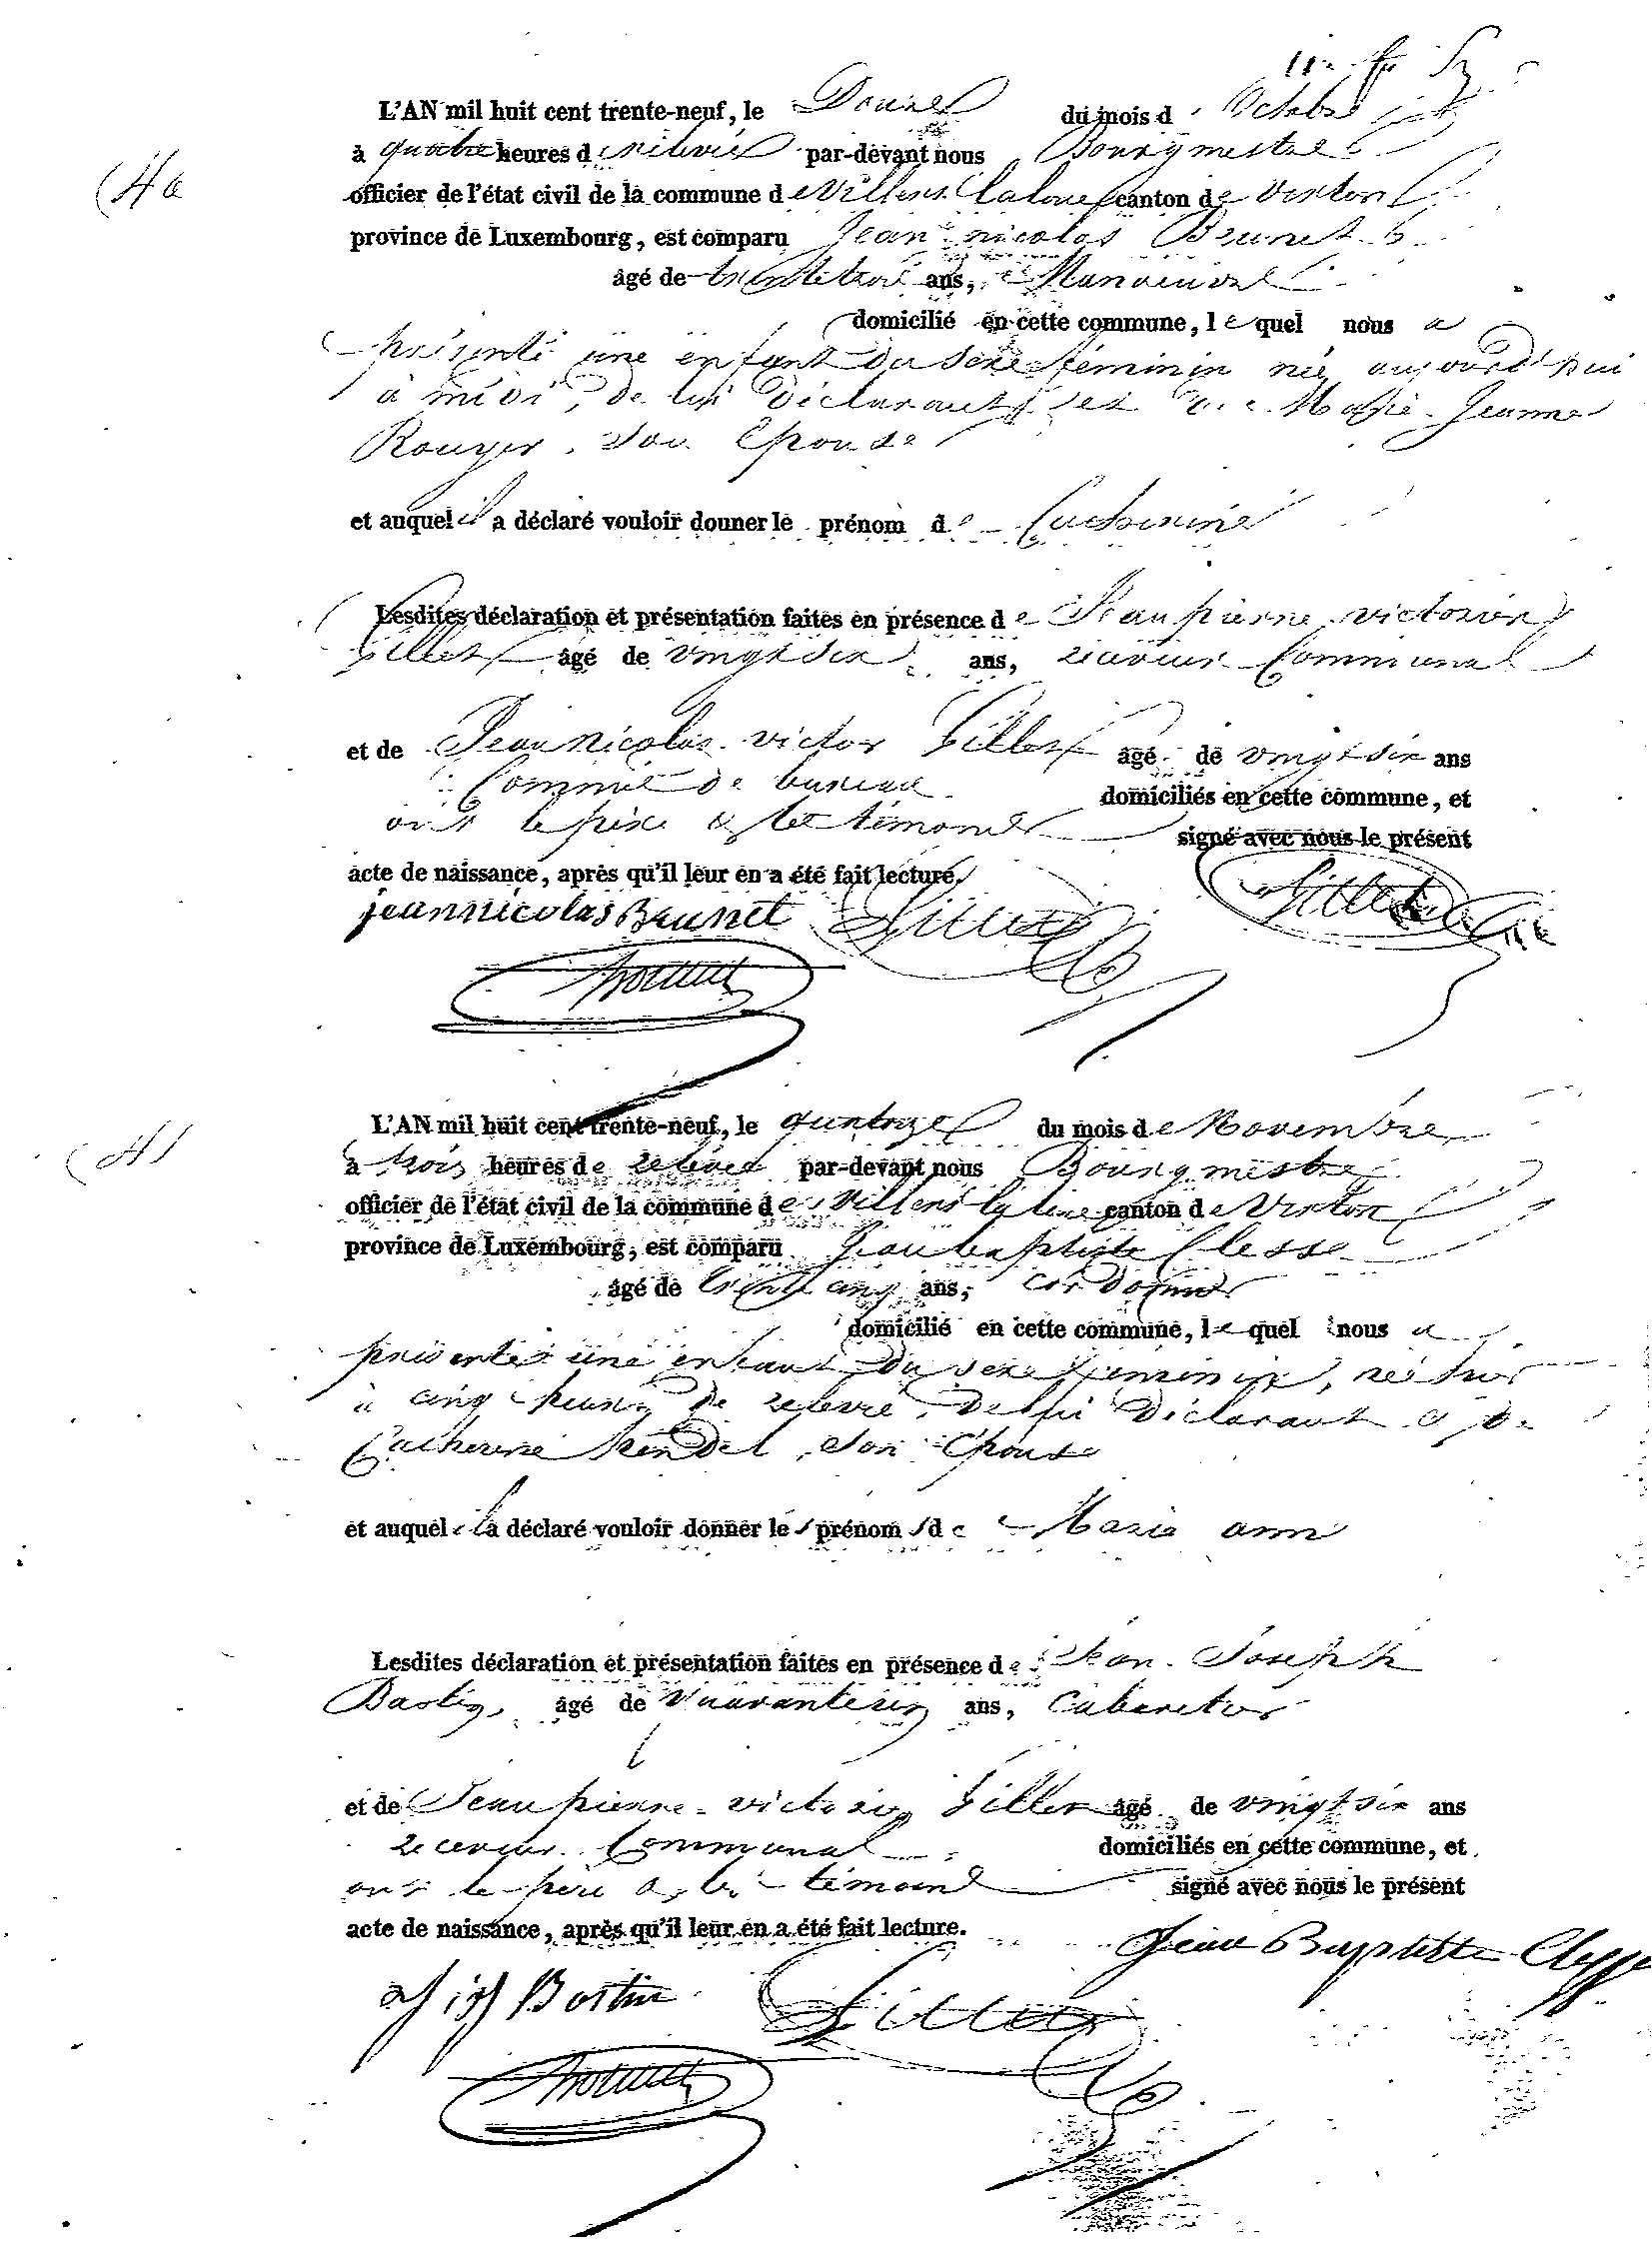 L'AN mil huit cent trente-neuf, le Douze du mois d'Octobre
à quatre heures de relevée par-devant nous Bourgmestre
officier de l'état civil de la commune de Villers laLoue canton de Virton
province de Luxembourg, est comparu Jean nicolas Brunet
âgé de trentetrois ans, Manoeuvre
domicilié en cette commune, lequel nous a
présenté une enfant du sexe féminin née aujourd'hui
à midi, de lui déclarant et de Marie Jeanne
Rouyer, son épouse
et auquel il a déclaré vouloir donner le prénom de Catherine
Lesdites déclaration et présentation faites en présence de Jean pierre victorin
Gillet âgé de vingt six ans, receveur Communal
et de Jean Nicolas victor Gillet âgé de vingt six ans
Commis de bureau domiciliés en cette commune, et
ont le père et les témoins signé avec nous le présent
acte de naissance, après qu'il leur en a été fait lecture.
jeannicolas Brunet Gillet Gillet
L'AN mil huit cent trente-neuf, le quatorze du mois de Novembre
à trois heures de relevée par-devant nous Bourgmestre
officier de l'état civil de la commune de Villers la loue canton de Virton
province de Luxembourg, est comparu Jean baptiste Clesse
âgé de trente cinq ans, cordonnier
domicilié en cette commune, lequel nous a
présenté une enfant du sexe féminin, née hier
à cinq heures de relevée, de lui déclarant et de
Catherine hendel, son épouse
et auquel il a déclaré vouloir donner les prénoms de Marie ann
Lesdites déclaration et présentation faites en présence de Jean Joseph
Bastin, âgé de quarante six ans, Cabaretier
et de Jean pierre victorin Gillet âgé de vingt six ans
receveur Communal domiciliés en cette commune, et
ont le père et les témoins signé avec nous le présent
acte de naissance, après qu'il leur en a été fait lecture.
Jean Baptiste Clesse
Bastin Gillet